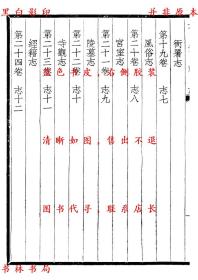 黑白影印 并非原本
第十九卷 志七
衙署志
第二十卷 志八
風俗志
第二十一卷 志九
宮室志
第二十二卷 志十
陵墓志
第二十三卷 志十一
寺觀志
第二十四卷 志十二
經籍志
蓝色书皮，右侧胶装
清晰如图，售出不退
图书代子 联系店长
书林书局